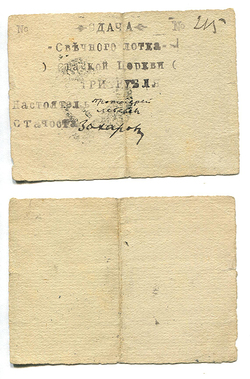 № СДАЧА № 215
Свѣчного лотка
Церкви
ТРИ РУБЛЯ
Настоятель протоіерей
Староста Захаров